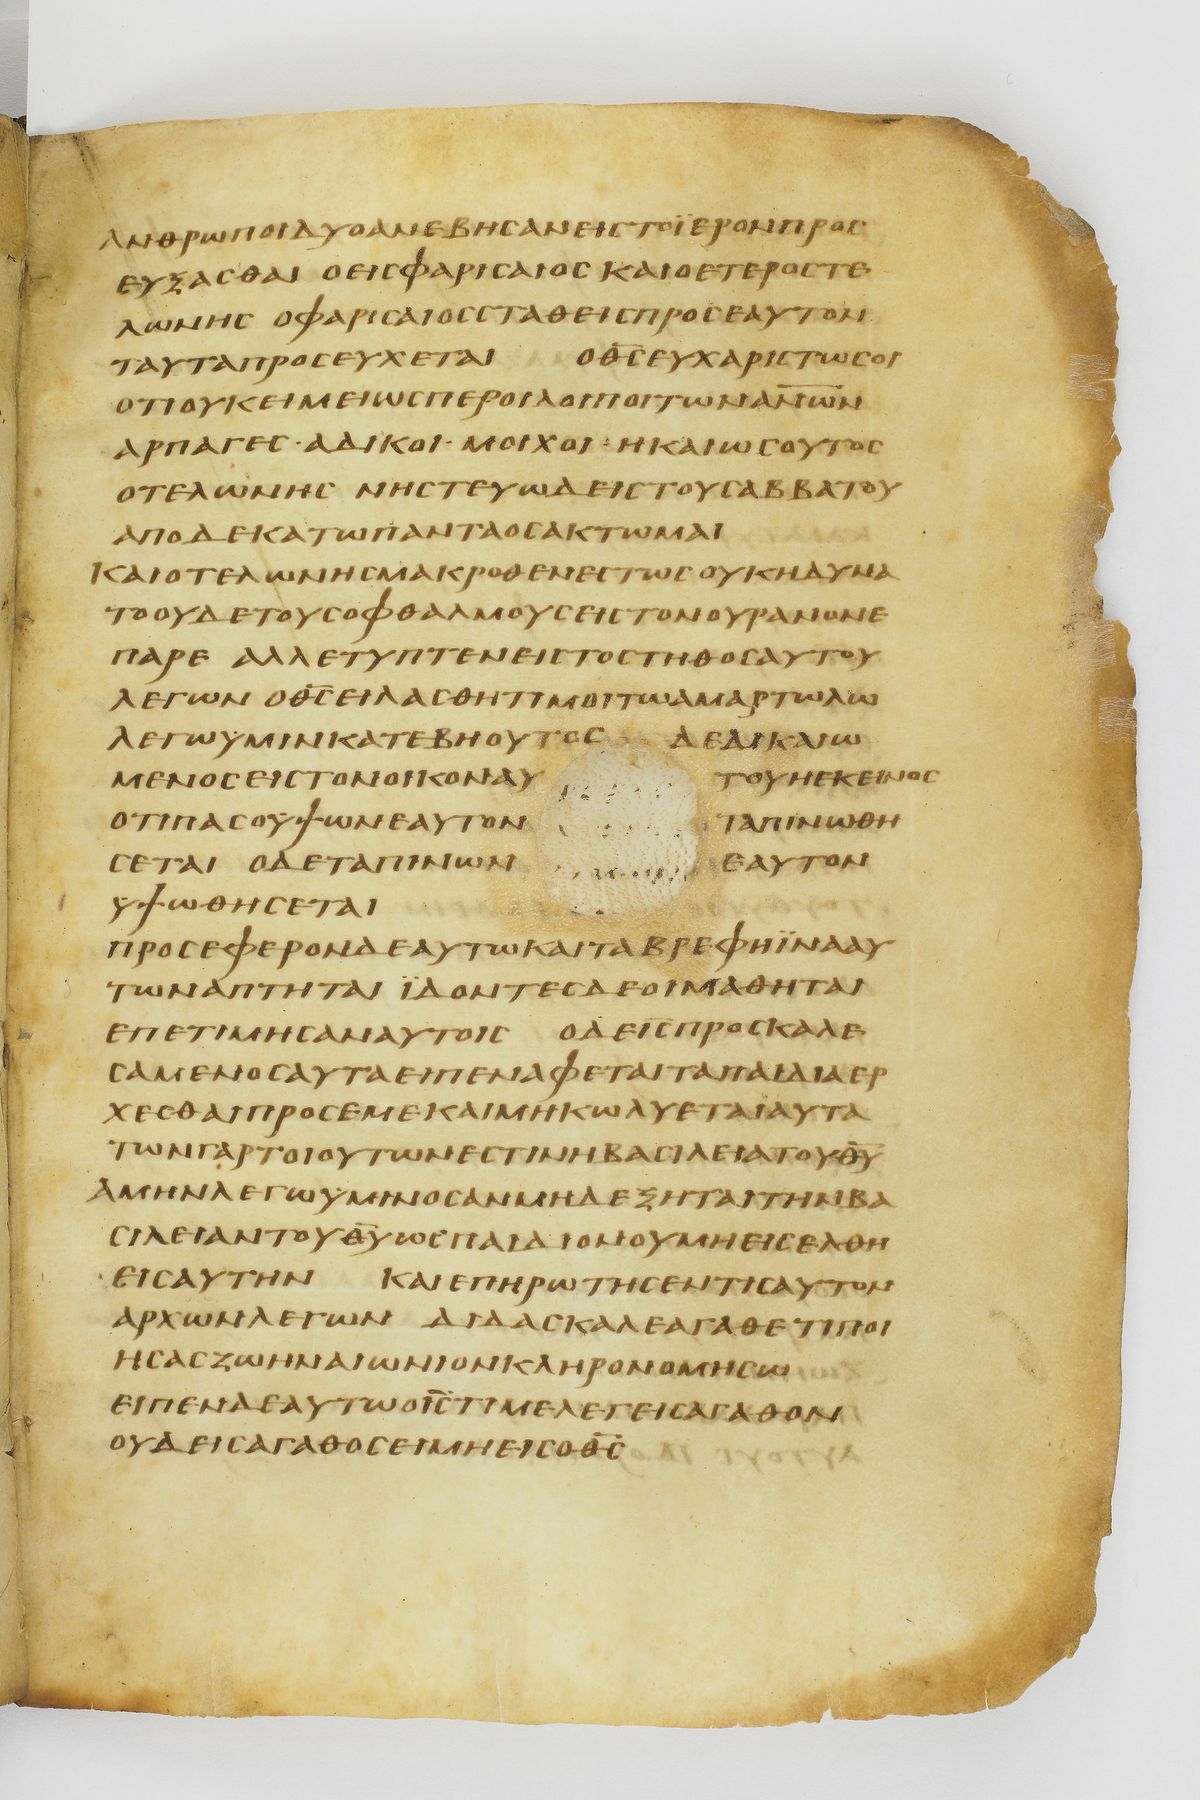 ΑΝΘΡΩΠΟΙΔΥΟΑΝΕΒΗСΑΝΕΙСΤΟΪΕΡΟΝΠΡΟС
ΕΥΞΑСΘΑΙ ΟΕΙСΦΑΡΙСΑΙΟС ΚΑΙΟΕΤΕΡΟСΤΕ
ΛΩΝΗС ΟΦΑΡΙСΑΙΟССΤΑΘΕΙСΠΡΟСΕΑΥΤΟΝ
ΤΑΥΤΑΠΡΟСΕΥΧΕΤΑΙ ΟΘ̅С̅ΕΥΧΑΡΙСΤΩСΟΙ
ΟΤΙΟΥΚΕΙΜΕΙΩСΠΕΡΟΙΛΟΙΠΟΙΤΩΝΑΝ̅Ω̅Ν̅
ΑΡΠΑΓΕС · ΑΔΙΚΟΙ · ΜΟΙΧΟΙ · ΗΚΑΙΩСΟΥΤΟС
ΟΤΕΛΩΝΗС ΝΗСΤΕΥΩΔΕΙСΤΟΥСΑΒΒΑΤΟΥ
ΑΠΟΔΕΚΑΤΩΠΑΝΤΑΟСΑΚΤΩΜΑΙ
ΚΑΙΟΤΕΛΩΝΗСΜΑΚΡΟΘΕΝΕСΤΩСΟΥΚΗΔΥΝΑ
ΤΟΟΥΔΕΤΟΥСΟΦΘΑΛΜΟΥСΕΙСΤΟΝΟΥΡΑΝΟΝΕ
ΠΑΡΕ ΑΛΛΕΤΥΠΤΕΝΕΙСΤΟСΤΗΘΟСΑΥΤΟΥ
ΛΕΓΩΝ ΟΘ̅С̅ΕΙΛΑСΘΗΤΙΜΟΙΤΩΑΜΑΡΤΩΛΩ
ΛΕΓΩΥΜΙΝΚΑΤΕΒΗΟΥΤΟС ΔΕΔΙΚΑΙΩ
ΜΕΝΟСΕΙСΤΟΝΟΙΚΟΝΑΥ ΤΟΥΗΕΚΕΙΝΟС
ΟΤΙΠΑСΟΥΨΩΝΕΑΥΤΟΝ ΤΑΠΙΝΩΘΗ
СΕΤΑΙ ΟΔΕΤΑΠΙΝΩΝ ΕΑΥΤΟΝ
ΥΨΩΘΗСΕΤΑΙ
ΠΡΟСΕΦΕΡΟΝΔΕΑΥΤΩΚΑΙΤΑΒΡΕΦΗΪΝΑΑΥ
ΤΩΝΑΠΤΗΤΑΙ ΪΔΟΝΤΕСΔΕΟΙΜΑΘΗΤΑΙ
ΕΠΕΤΙΜΗСΑΝΑΥΤΟΙС ΟΔΕΙ̅С̅ΠΡΟСΚΑΛΕ
СΑΜΕΝΟСΑΥΤΑΕΙΠΕΝΑΦΕΤΑΙΤΑΠΑΙΔΙΑΕΡ
ΧΕСΘΑΙΠΡΟСΕΜΕΚΑΙΜΗΚΩΛΥΕΤΑΙΑΥΤΑ
ΤΩΝΓΑΡΤΟΙΟΥΤΩΝΕСΤΙΝΗΒΑСΙΛΕΙΑΤΟΥΘ̅Υ̅
ΑΜΗΝΛΕΓΩΥΜΙΝΟСΑΝΜΗΔΕΞΗΤΑΙΤΗΝΒΑ
СΙΛΕΙΑΝΤΟΥΘ̅Υ̅ΩСΠΑΙΔΙΟΝΟΥΜΗΕΙСΕΛΘΗ
ΕΙСΑΥΤΗΝ ΚΑΙΕΠΗΡΩΤΗСΕΝΤΙСΑΥΤΟΝ
ΑΡΧΩΝΛΕΓΩΝ ΔΙΔΑСΚΑΛΕΑΓΑΘΕΤΙΠΟΙ
ΗСΑСΖΩΗΝΑΙΩΝΙΟΝΚΛΗΡΟΝΟΜΗСΩ
ΕΙΠΕΝΔΕΑΥΤΩΟΙ̅С̅ΤΙΜΕΛΕΓΕΙСΑΓΑΘΟΝ
ΟΥΔΕΙСΑΓΑΘΟСΕΙΜΗΕΙСΟΘ̅С̅